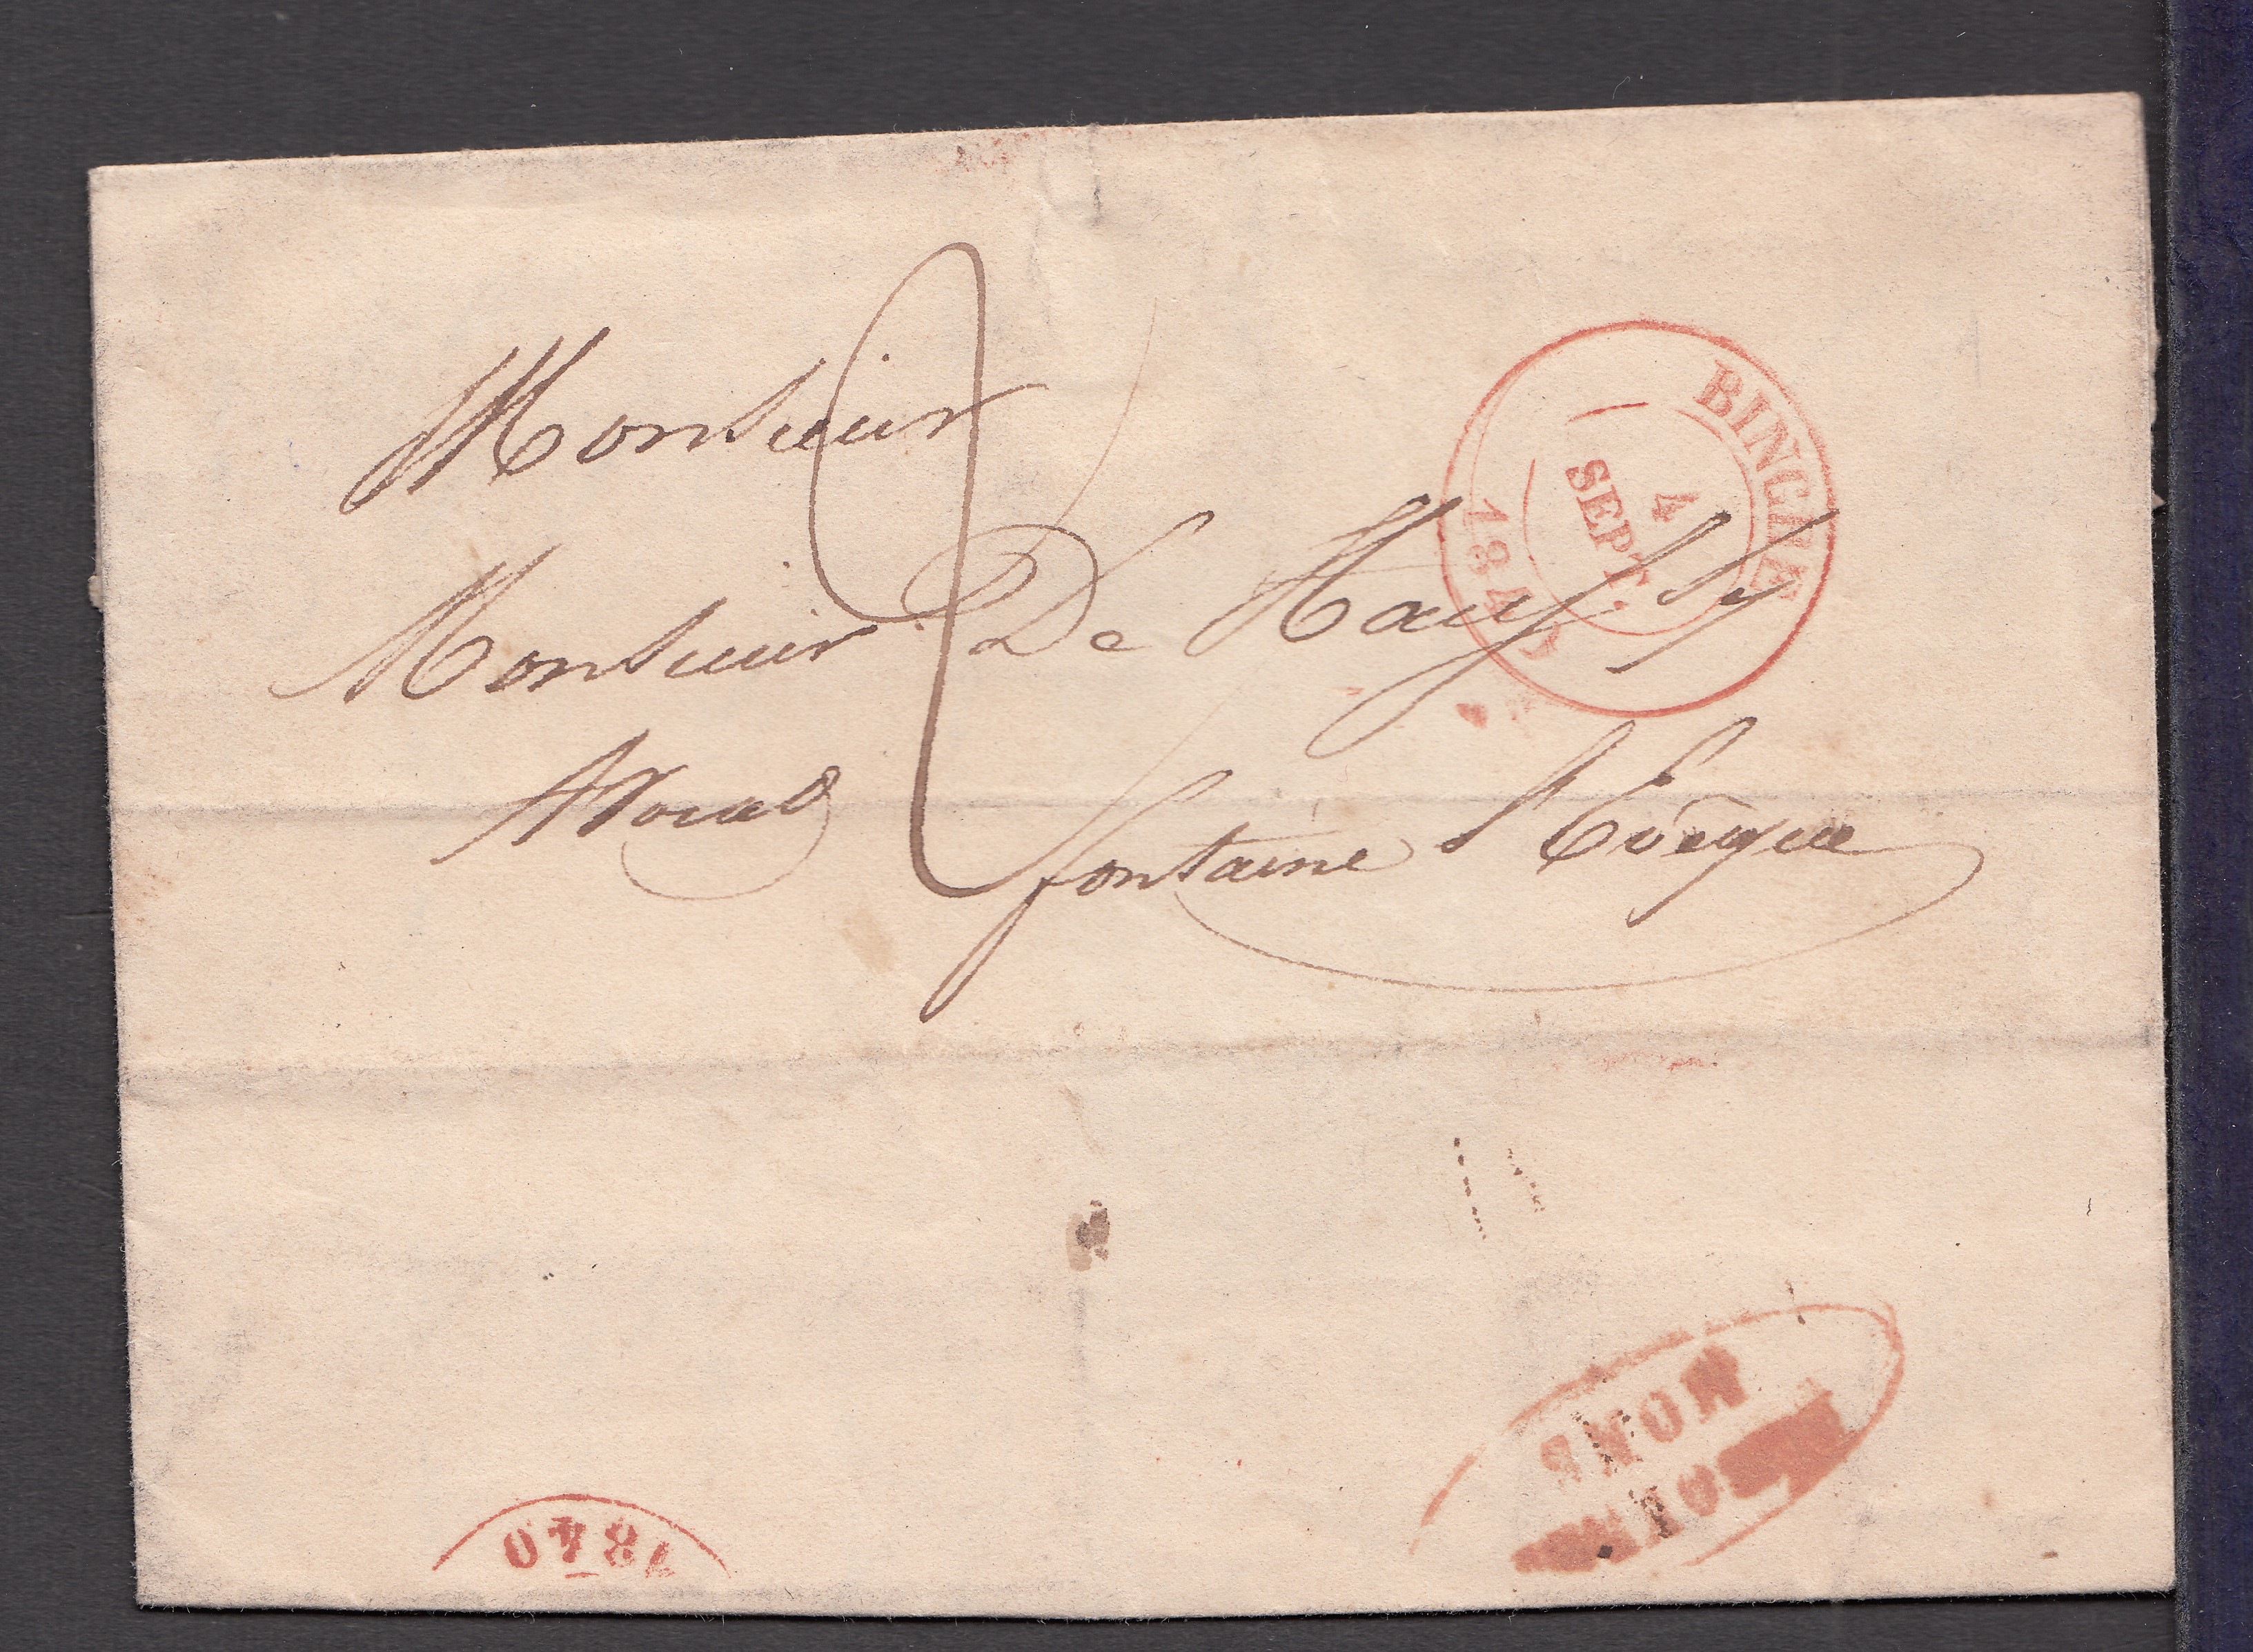 Monsieur
2
BINCHE
4
SEPT.
184
Monsieur De Haussy
Avocat
fontaine l'Evêque
MONS
1840